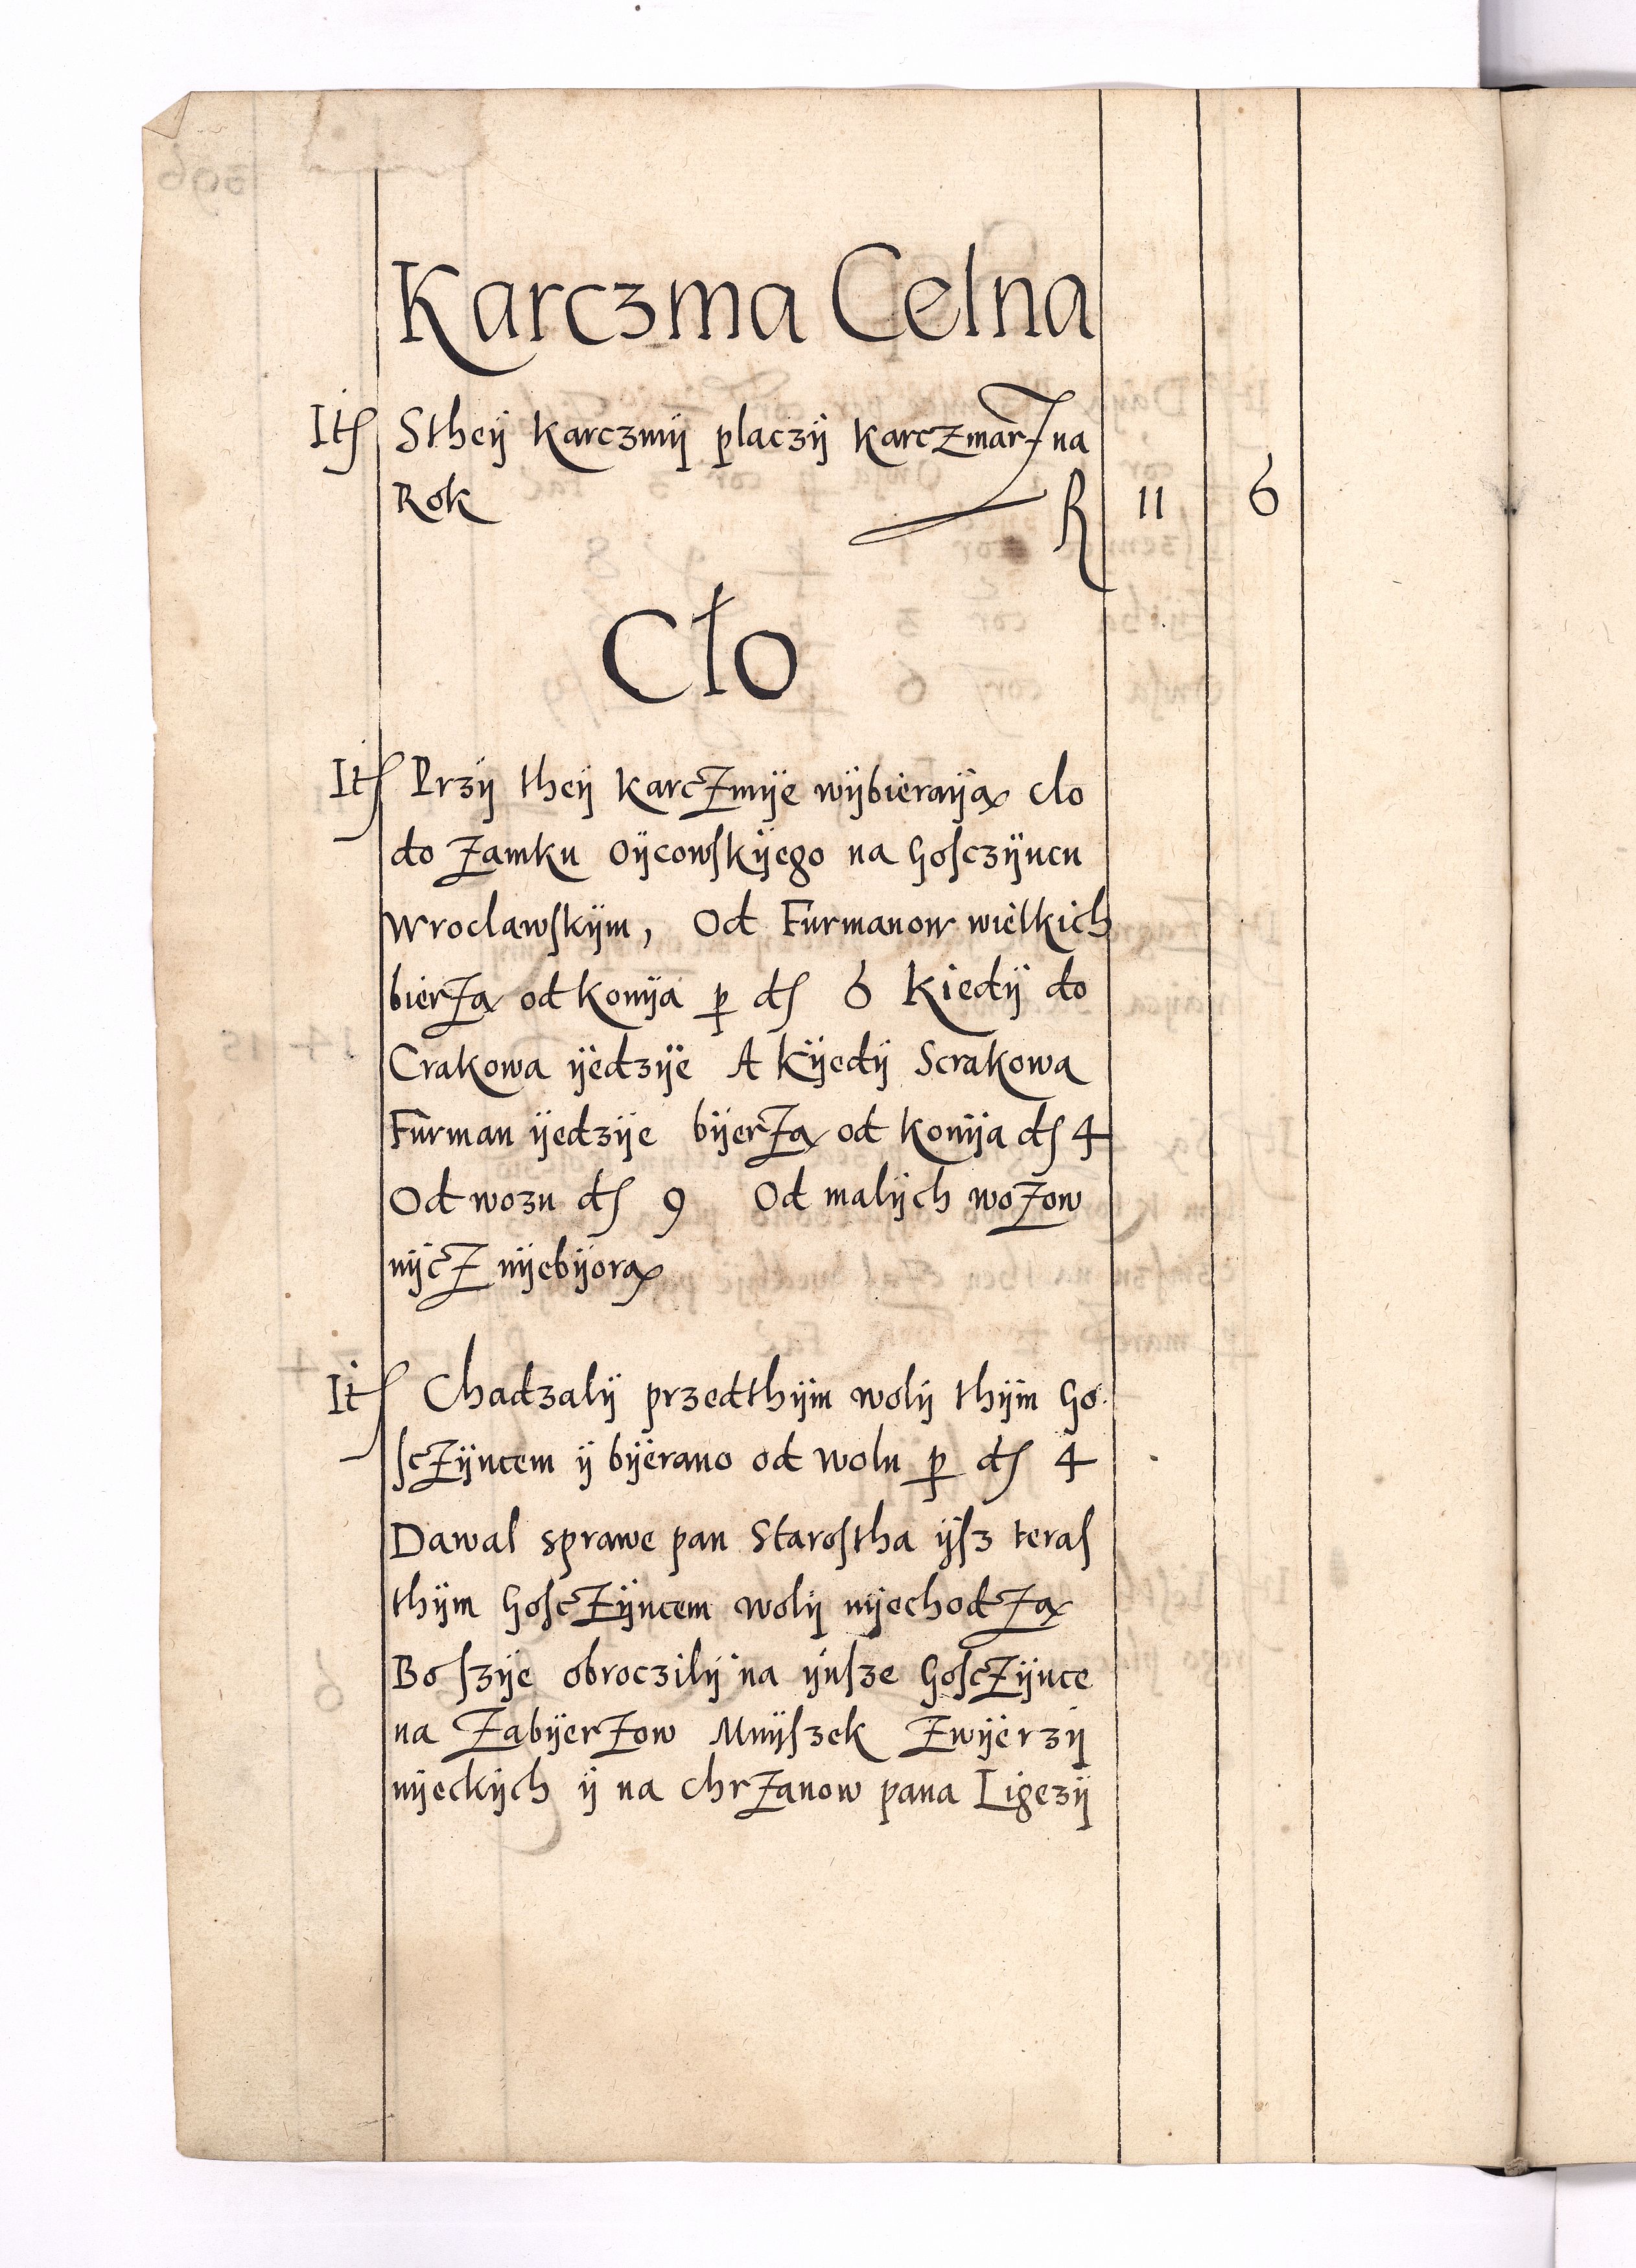 Karczma Celna
It Sthey karczmÿ placzÿ karczmarz na
Rok R 11 6
Cło
It Przÿ theÿ karczmÿe wÿbieraÿą clo
do zamku oÿcowskÿego na Gosczÿncu
Wroclawskÿm, Od Furmanow wielkich
bierzą od konÿa p d 6 Kiedÿ do
Crakowa ÿedzÿe A kÿedÿ Scrakowa
Furman ÿedzÿe bÿerzą od konÿa d 4
Od wozu d 9 Od malÿch wozow
nÿcz nÿebÿorą
It Chadzalÿ przedthÿm wolÿ thÿm Go
sczÿncem ÿ bÿerano od wolu p d 4
Dawal sprawe pan Starostha ÿsz teras
thÿm Gosczÿncem wolÿ nÿechodzą
Bo szÿe obroczilÿ na ÿnsze Gosczÿnce
na Zabÿerzow Mnÿszek Zwÿerzÿ
nÿeckÿch ÿ na chrzanow pana Ligezÿ